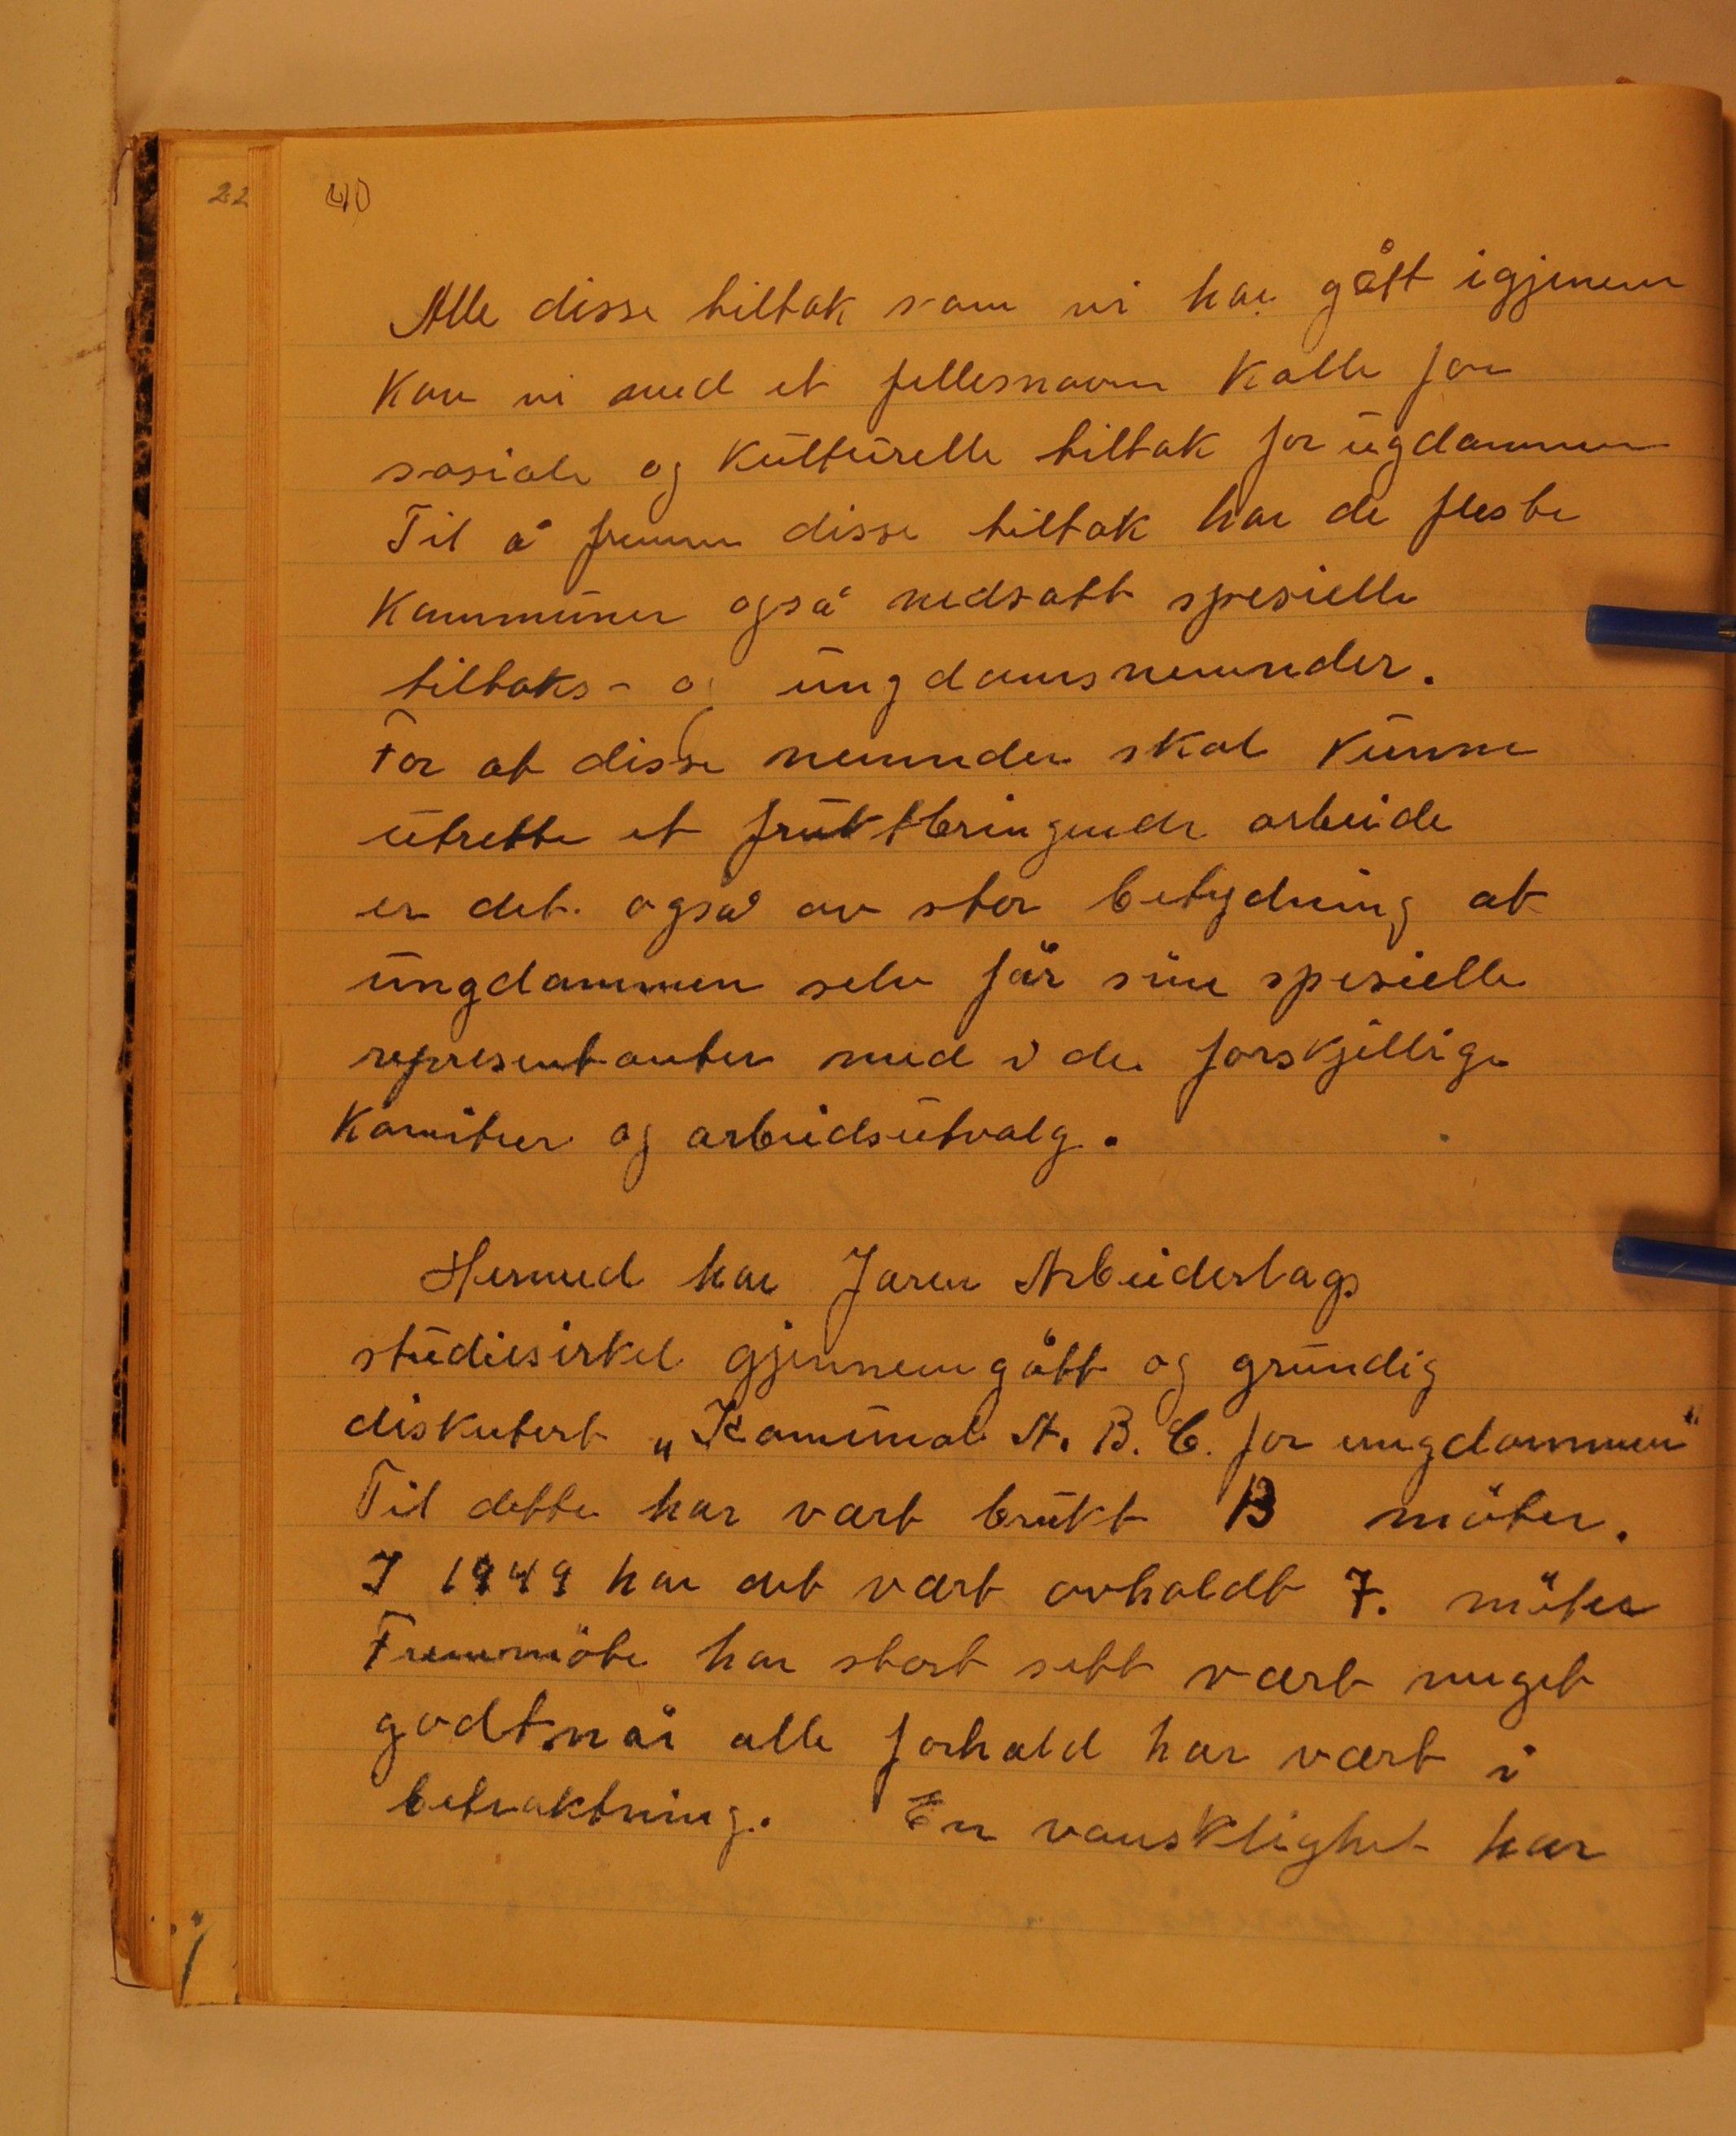 22 40
Alle disse tiltak som vi har gått igjenem
kan vi med et fellesnavn kalle for
sosiale og kulturelle tiltak for ugdommen
Til å fremme disse tiltak har de fleste
kommuner også nedsatt spesielle
tiltaks- og ungdomsnemnder.
For at disse nemnder skal kunne
utrette et fruktbringende arbeide
er det også av stor betydning at
ungdommen selv får sine spesielle
representanter med i de forskjellige
komiteer og arbeidsutvalg.
Hermed har Jaren Arbeiderlags
studiesirkel gjennemgått og grundig
diskutert „Komunal A. B. C. for ungdommen"
Til dette har vært brukt 13 möter.
I 1949 har det vært avholdt 7. möter
Fremmöte har stort sett vært meget
godt når alle forhold har vært i
betraktning. En vansklighet har